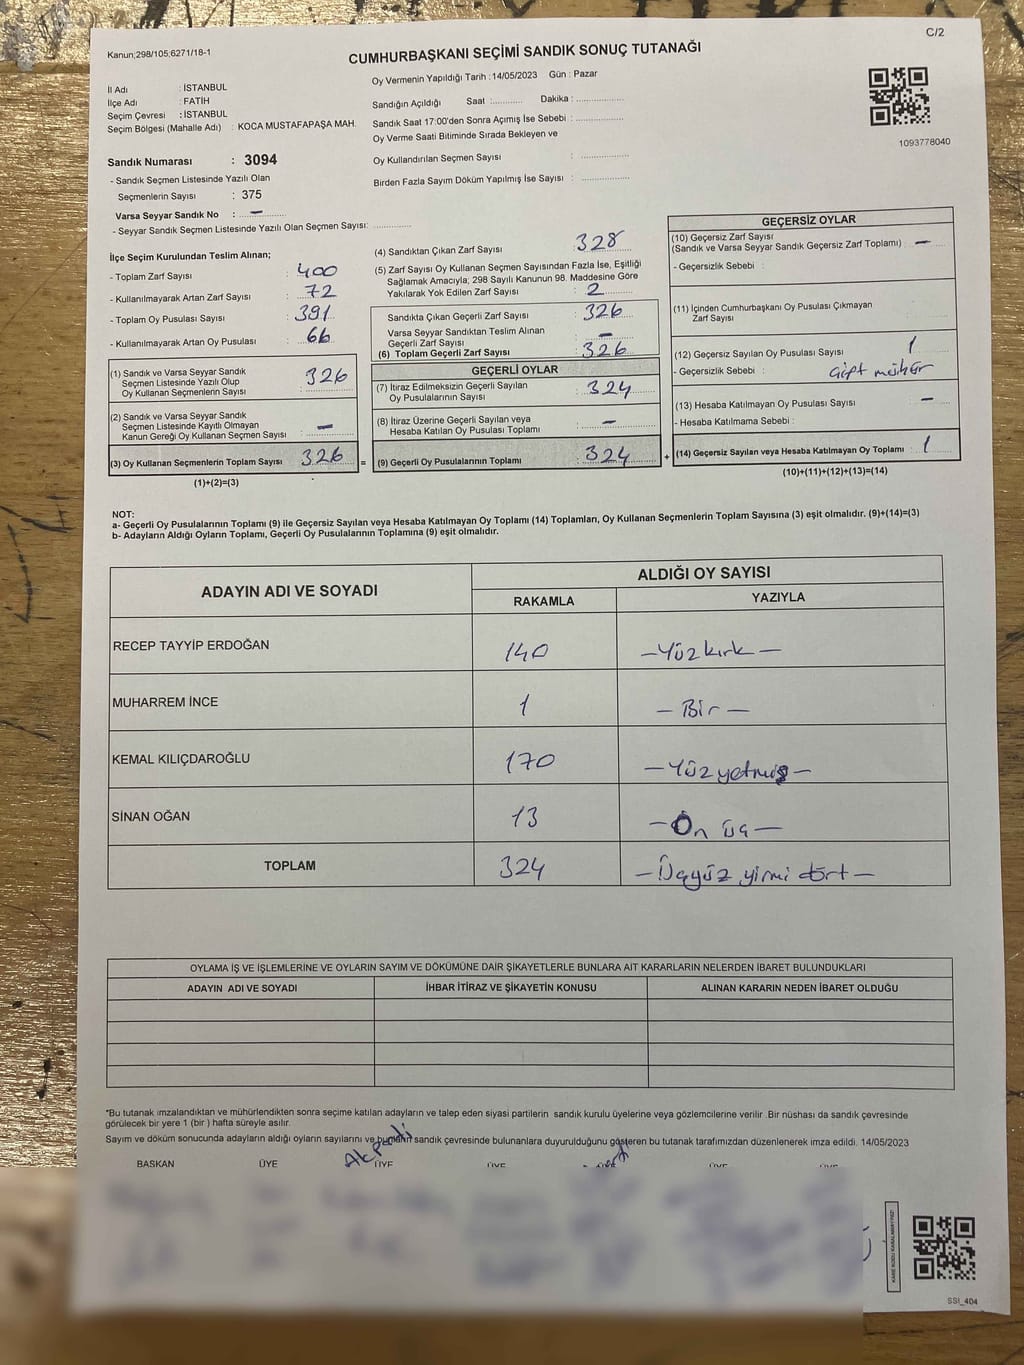 C/2
Kanun;298/105;6271/18-1
CUMHURBAŞKANI SEÇİMİ SANDIK SONUÇ TUTANAĞI
İl Adı : İSTANBUL
İlçe Adı : FATİH
Seçim Çevresi : İSTANBUL
Seçim Bölgesi (Mahalle Adı) : KOCA MUSTAFAPAŞA MAH.
Sandık Numarası : 3094
- Sandık Seçmen Listesinde Yazılı Olan
Seçmenlerin Sayısı : 375
Varsa Seyyar Sandık No : —
- Seyyar Sandık Seçmen Listesinde Yazılı Olan Seçmen Sayısı: ..............
Oy Vermenin Yapıldığı Tarih :14/05/2023 Gün : Pazar
Sandığın Açıldığı Saat :........... Dakika : ................
Sandık Saat 17:00'den Sonra Açımış İse Sebebi : ................
Oy Verme Saati Bitiminde Sırada Bekleyen ve
Oy Kullandırılan Seçmen Sayısı : ................
Birden Fazla Sayım Döküm Yapılmış İse Sayısı : ................
1093778040
İlçe Seçim Kurulundan Teslim Alınan;
- Toplam Zarf Sayısı : 400
- Kullanılmayarak Artan Zarf Sayısı : 72
- Toplam Oy Pusulası Sayısı : 391
- Kullanılmayarak Artan Oy Pusulası : 66
(1) Sandık ve Varsa Seyyar Sandık
Seçmen Listesinde Yazılı Olup
Oy Kullanan Seçmenlerin Sayısı : 326
(2) Sandık ve Varsa Seyyar Sandık
Seçmen Listesinde Kayıtlı Olmayan
Kanun Gereği Oy Kullanan Seçmen Sayısı : —
(3) Oy Kullanan Seçmenlerin Toplam Sayısı : 326 =
(1)+(2)=(3)
(4) Sandıktan Çıkan Zarf Sayısı : 328
(5) Zarf Sayısı Oy Kullanan Seçmen Sayısından Fazla İse, Eşitliği
Sağlamak Amacıyla; 298 Sayılı Kanunun 98. Maddesine Göre
Yakılarak Yok Edilen Zarf Sayısı : 2
Sandıkta Çıkan Geçerli Zarf Sayısı : 326
Varsa Seyyar Sandıktan Teslim Alınan
Geçerli Zarf Sayısı : —
(6) Toplam Geçerli Zarf Sayısı : 326
GEÇERLİ OYLAR
(7) İtiraz Edilmeksizin Geçerli Sayılan
Oy Pusulalarının Sayısı : 324
(8) İtiraz Üzerine Geçerli Sayılan veya
Hesaba Katılan Oy Pusulası Toplamı : —
(9) Geçerli Oy Pusulalarının Toplamı : 324 +
GEÇERSİZ OYLAR
(10) Geçersiz Zarf Sayısı
(Sandık ve Varsa Seyyar Sandık Geçersiz Zarf Toplamı) : —
- Geçersizlik Sebebi :
(11) İçinden Cumhurbaşkanı Oy Pusulası Çıkmayan
Zarf Sayısı :
(12) Geçersiz Sayılan Oy Pusulası Sayısı : 1
- Geçersizlik Sebebi : Çift mühür
(13) Hesaba Katılmayan Oy Pusulası Sayısı : —
- Hesaba Katılmama Sebebi :
(14) Geçersiz Sayılan veya Hesaba Katılmayan Oy Toplamı : 1
(10)+(11)+(12)+(13)=(14)
NOT:
a- Geçerli Oy Pusulalarının Toplamı (9) ile Geçersiz Sayılan veya Hesaba Katılmayan Oy Toplamı (14) Toplamları, Oy Kullanan Seçmenlerin Toplam Sayısına (3) eşit olmalıdır. (9)+(14)=(3)
b- Adayların Aldığı Oyların Toplamı, Geçerli Oy Pusulalarının Toplamına (9) eşit olmalıdır.
ADAYIN ADI VE SOYADI
ALDIĞI OY SAYISI
RAKAMLA YAZIYLA
RECEP TAYYİP ERDOĞAN 140 —Yüz kırk—
MUHARREM İNCE 1 — Bir —
KEMAL KILIÇDAROĞLU 170 —Yüz yetmiş—
SİNAN OĞAN 13 —On üç—
TOPLAM 324 —Üçyüz yirmi dört—
OYLAMA İŞ VE İŞLEMLERİNE VE OYLARIN SAYIM VE DÖKÜMÜNE DAİR ŞİKAYETLERLE BUNLARA AİT KARARLARIN NELERDEN İBARET BULUNDUKLARI
ADAYIN ADI VE SOYADI İHBAR İTİRAZ VE ŞİKAYETİN KONUSU ALINAN KARARIN NEDEN İBARET OLDUĞU
*Bu tutanak imzalandıktan ve mühürlendikten sonra seçime katılan adayların ve talep eden siyasi partilerin sandık kurulu üyelerine veya gözlemcilerine verilir .Bir nüshası da sandık çevresinde
görülecek bir yere 1 (bir ) hafta süreyle asılır.
Sayım ve döküm sonucunda adayların aldığı oyların sayılarını ve bunların sandık çevresinde bulunanlara duyurulduğunu gösteren bu tutanak tarafımızdan düzenlenerek imza edildi. 14/05/2023
Ak parti
BAŞKAN ÜYE ÜYE ÜYE ÜYE ÜYE
KARE KODU KARALAMAYINIZ!
SSİ_404